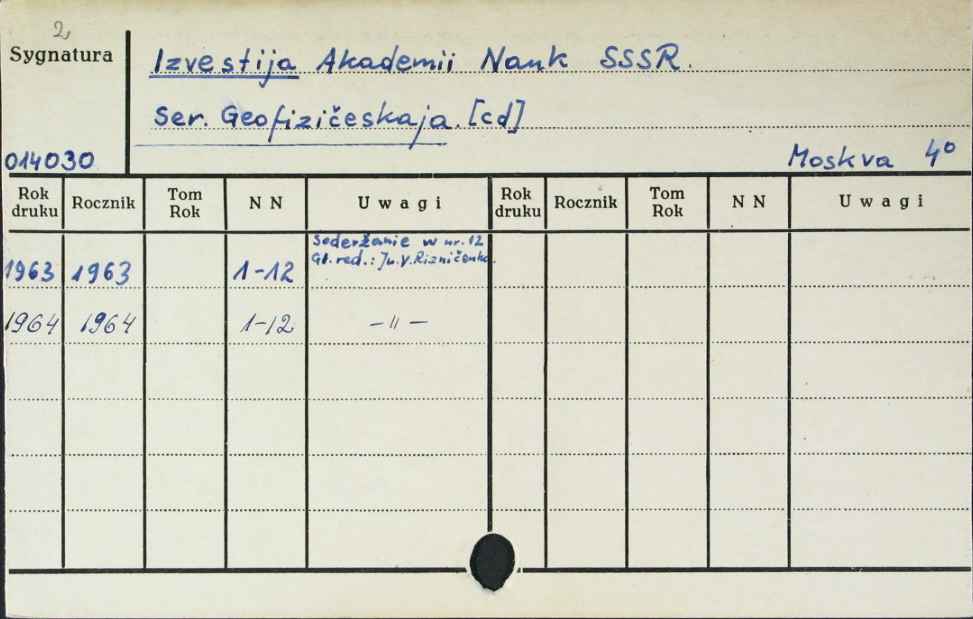 2
Sygnatura
Izvestija Akademii Nauk SSSR.
Ser. Geofizičeskaja. [cd]
014030
Moskva 4°
Rok druku Rocznik Tom Rok N N Uwagi Rok druku Rocznik Tom Rok N N Uwagi
Soderžanie w nr. 12
1963 1963 1-12 Gł. red.: Ju. V. Rizničenko.
1964 1964 1-12 – " –